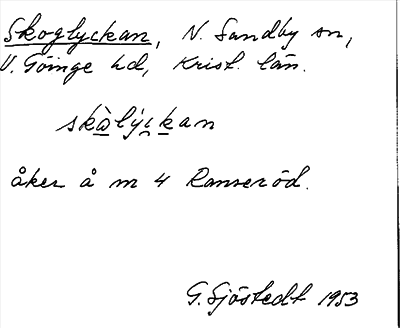 Skoglyckan, N. Sandby sn,
V. Göinge hd, Krist. län.
skòlýckan
åker å m 4 Ranseröd.
G. Sjöstedt 1953